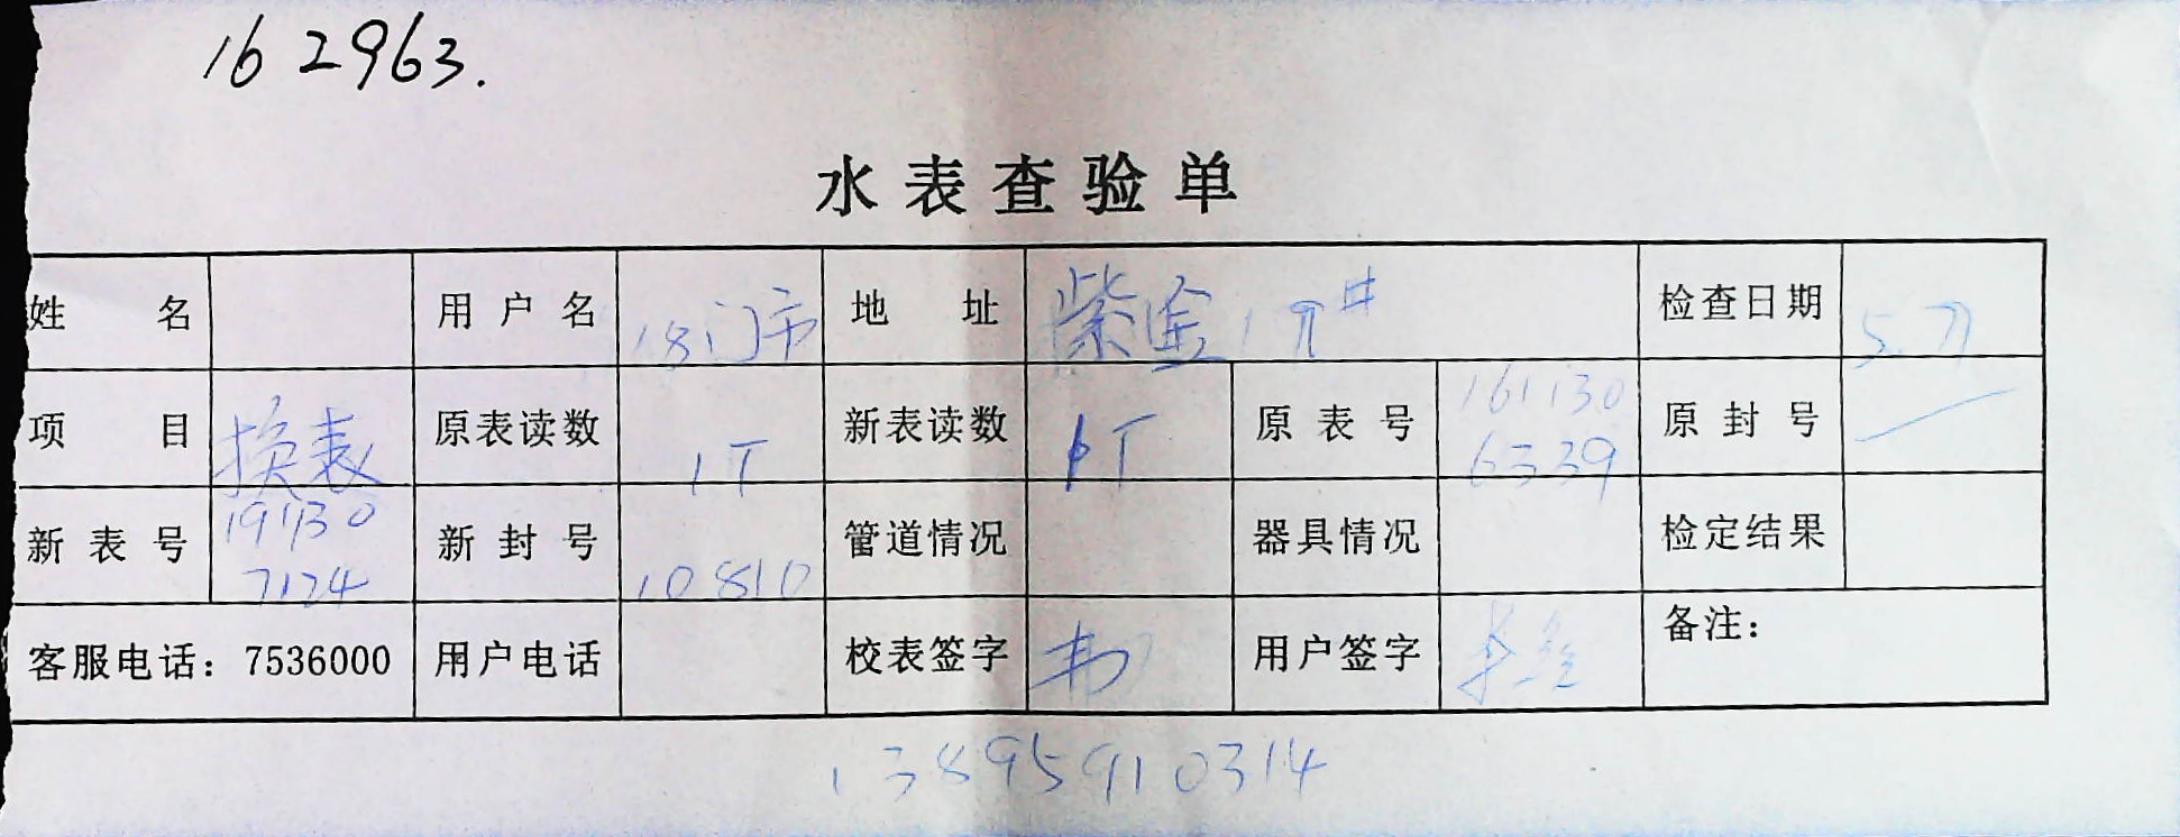 162963.
水表查验单
姓名 用户名 18门市 地址 紫金1 # 检查日期 5.
项目 换表 原表读数 1T 新表读数 1T 原表号 161130 6339 原封号
新表号 191130 7124 新封号 10810 管道情况 器具情况 检定结果
客服电话：7536000 用户电话 校表签字 用户签字 备注：
13895910314